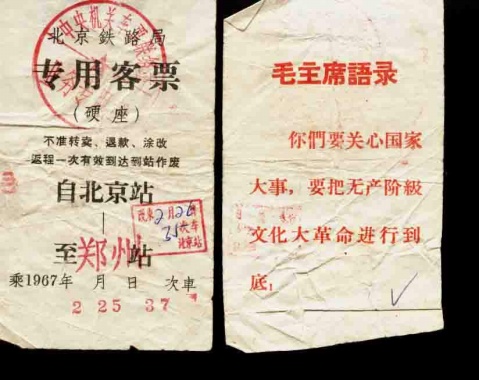 北京鉄路局
专用客票
(硬座)
不准转卖、退款、涂改
返程一次有效到达到站作废
自北京站
|
至郑州站
乘1967年 月 日 次車
2 25 37
2月26
35次车
北京站
毛主席語录
你們要关心国家
大事,要把无产阶級
文化大革命进行到
底。